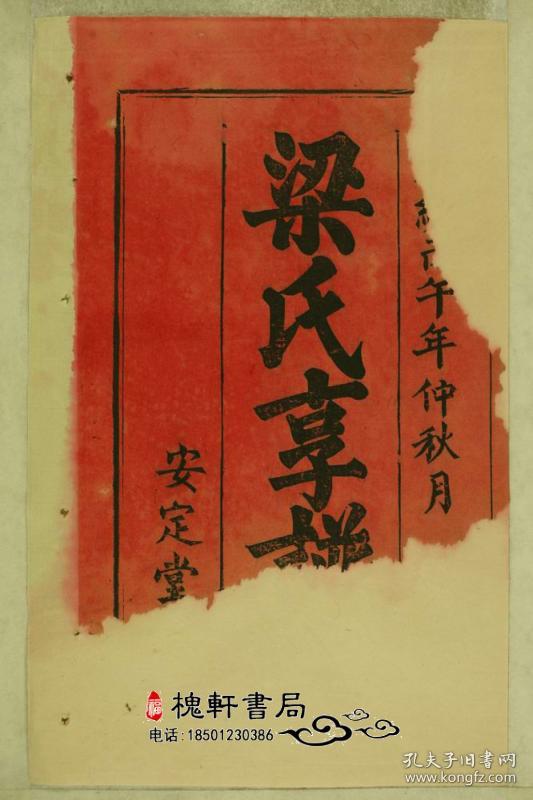 午年仲秋月
梁氏享
安定堂
福 槐軒書局
电话:18501230386
孔夫子旧书网
www.kongfz.com